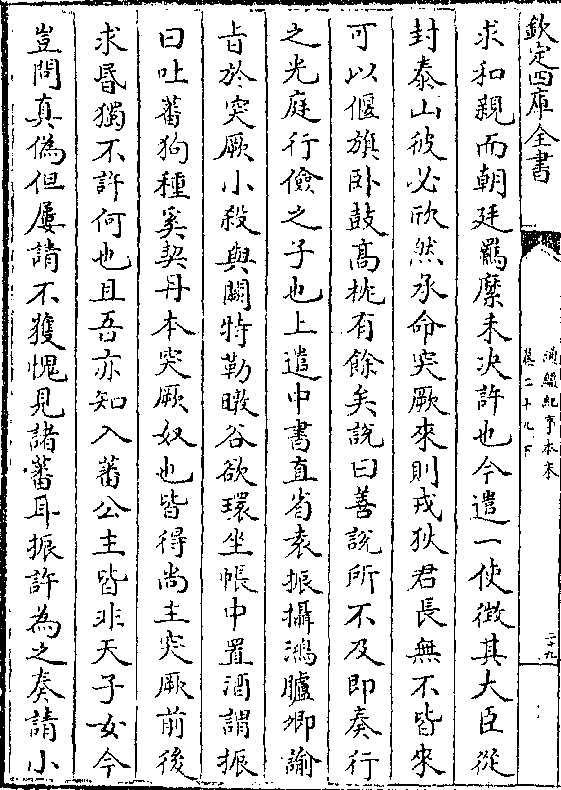 欽定四庫全書
通鑑紀事本末
卷二十九下
二十九
求和親而朝廷羈縻未決許也今遣一使徵其大臣從
封泰山彼必欣然承命突厥來則戎狄君長無不皆來
可以偃旗卧鼓髙枕有餘矣說曰善說所不及即奏行
之光庭行儉之子也上遣中書直省袁振攝鴻臚卿諭
㫖於突厥小殺與闕特勒暾谷欲環坐帳中置酒謂振
曰吐蕃狗種奚契丹本突厥奴也皆得尚主突厥前後
求昏獨不許何也且吾亦知入蕃公主皆非天子女今
豈問真偽但屢請不獲愧見諸蕃耳振許為之奏請小